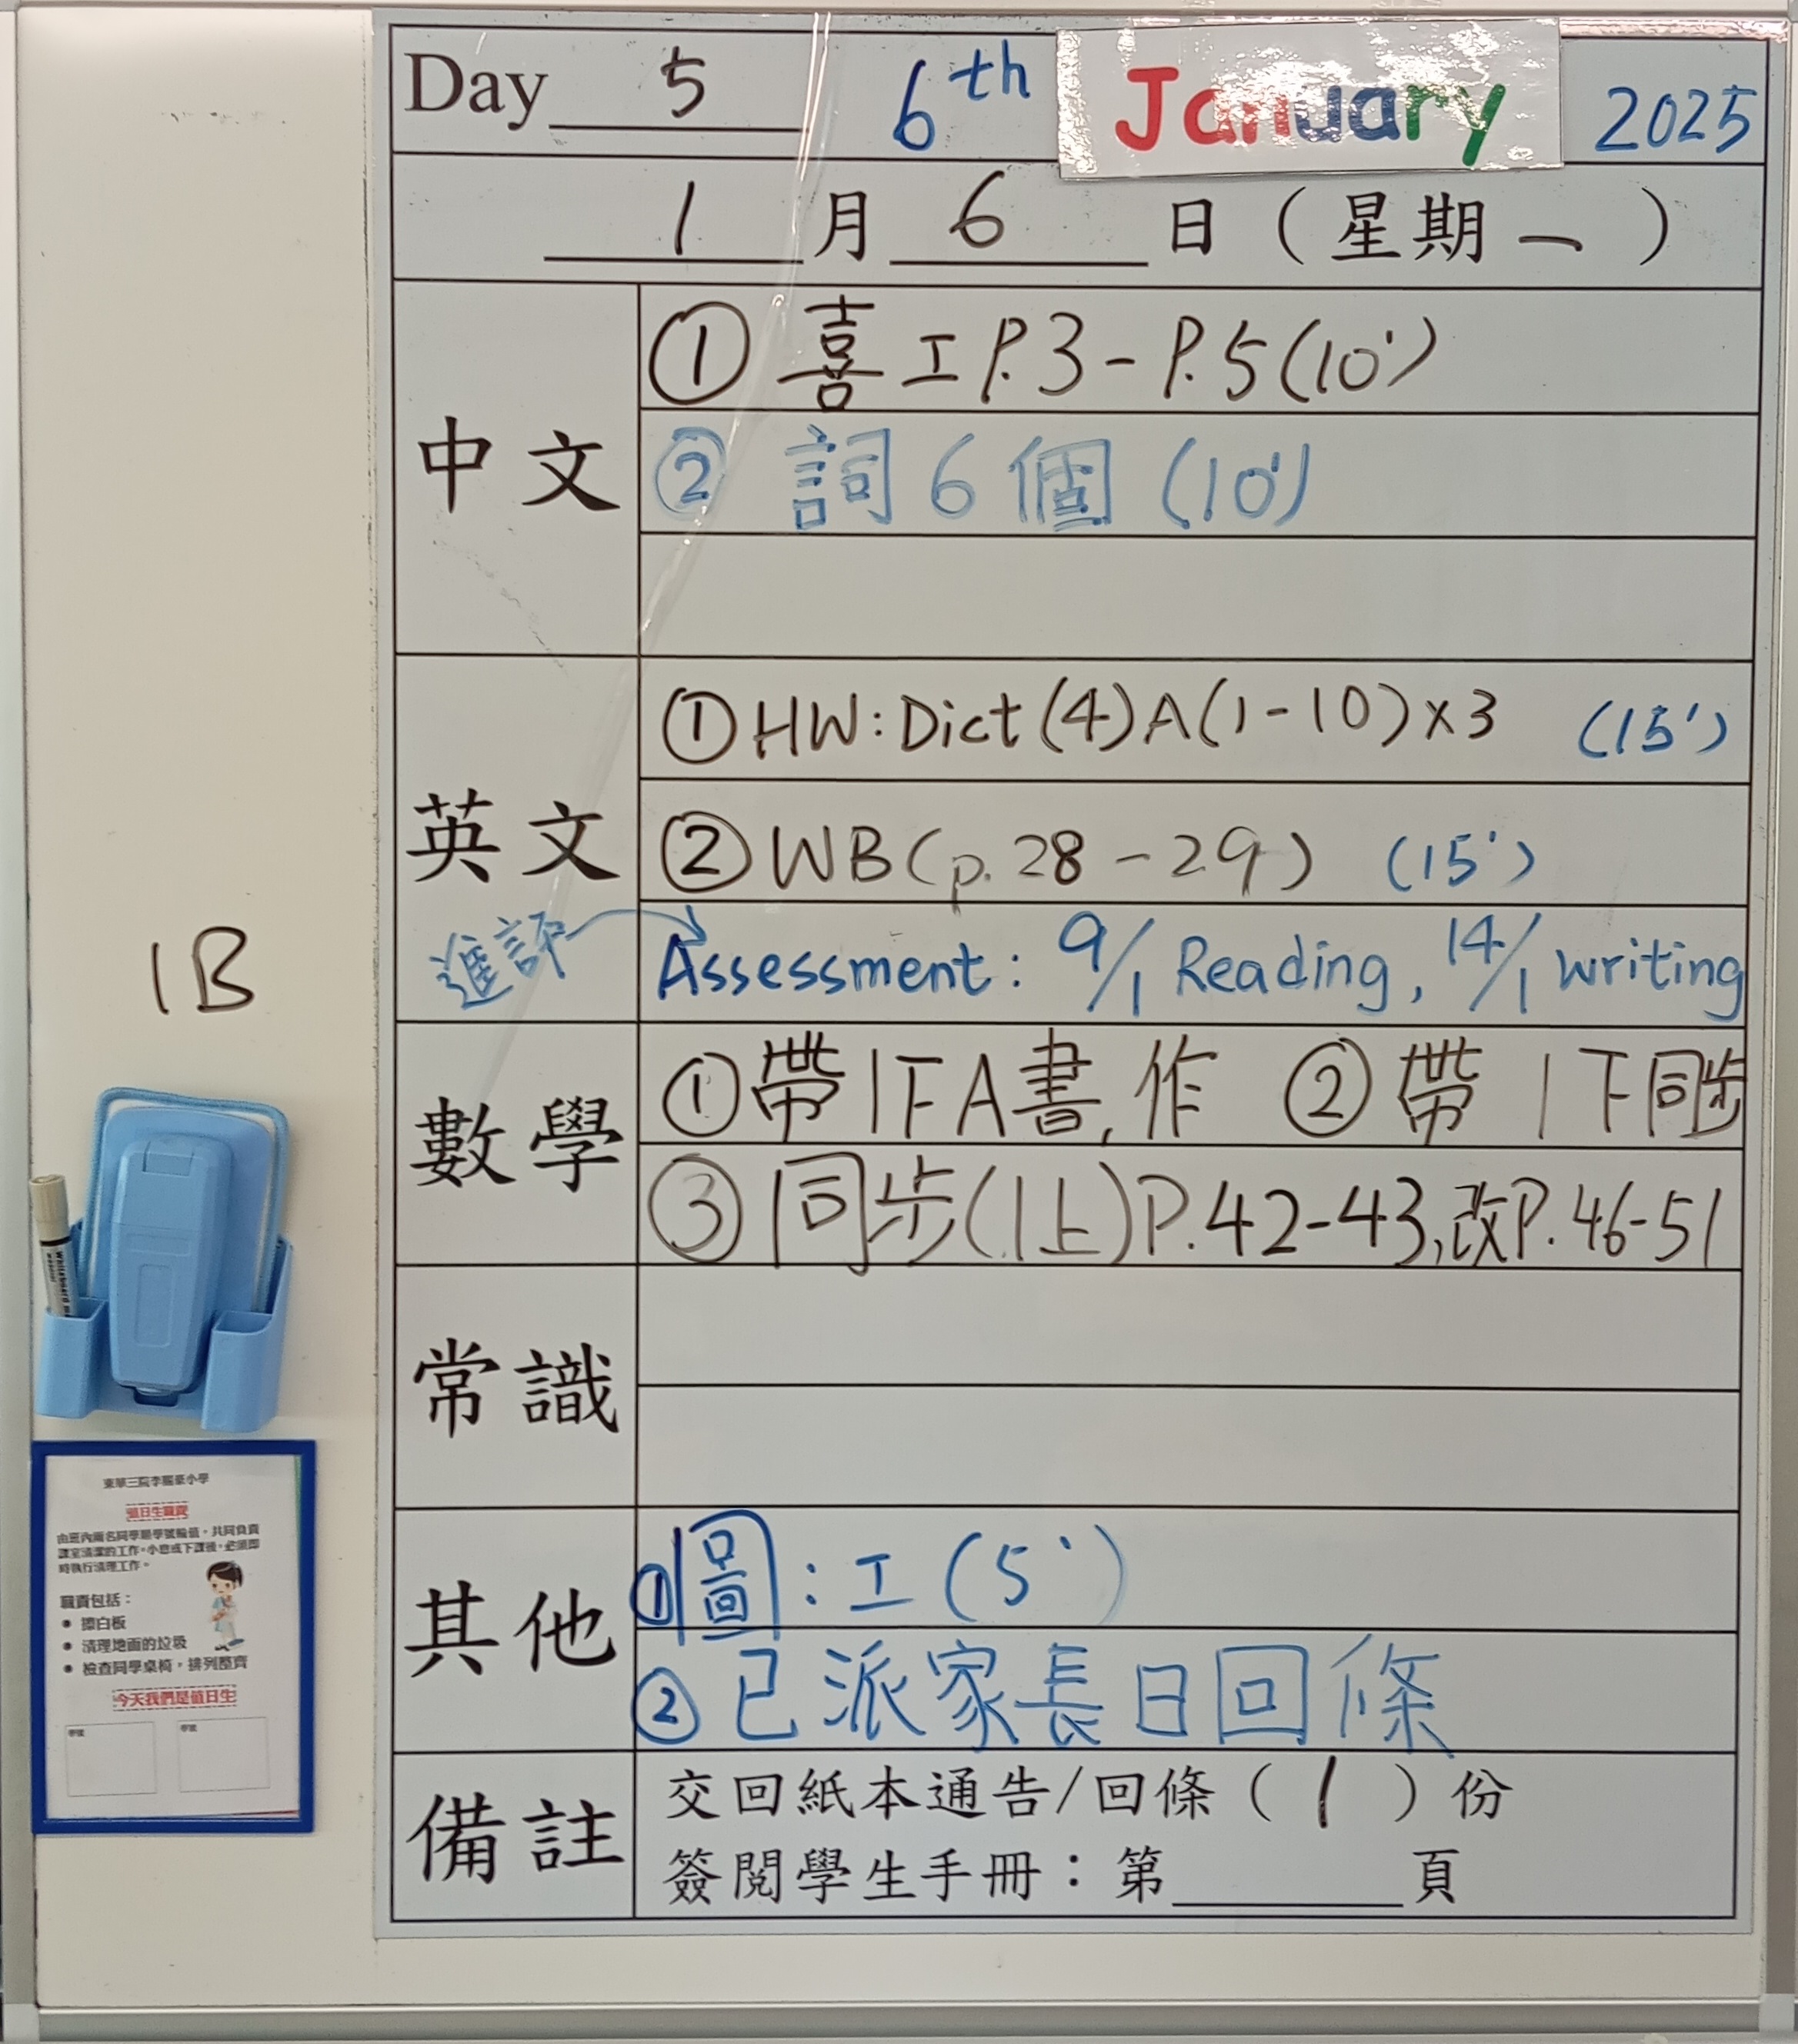 Day 5 6th January 2025
1月6日(星期一)
中文
① 喜工P.3-P.5(10')
② 詞6個(10')
英文
① HW:Dict(4)A(1-10)x3 (15')
② WB(p.28-29) (15')
進評
Assessment: 9/1 Reading, 14/1 writing
1B
數學
①帶1FA書,作 ②帶1下同步
③同步(1上)P.42-43,改P.46-51
常識
其他
①圖:工(5')
②已派家長日回條
備註
交回紙本通告/回條(1)份
簽閱學生手冊:第____頁
Whiteboard
值日生職責
由班內兩名同學順學號輪值,共同負責
課室清潔的工作。小息或下課後,必須即
時執行清理工作。
職責包括:
● 擦白板
● 清理地面的垃圾
● 檢查同學桌椅,排列整齊
今天我們是值日生
學號 學號